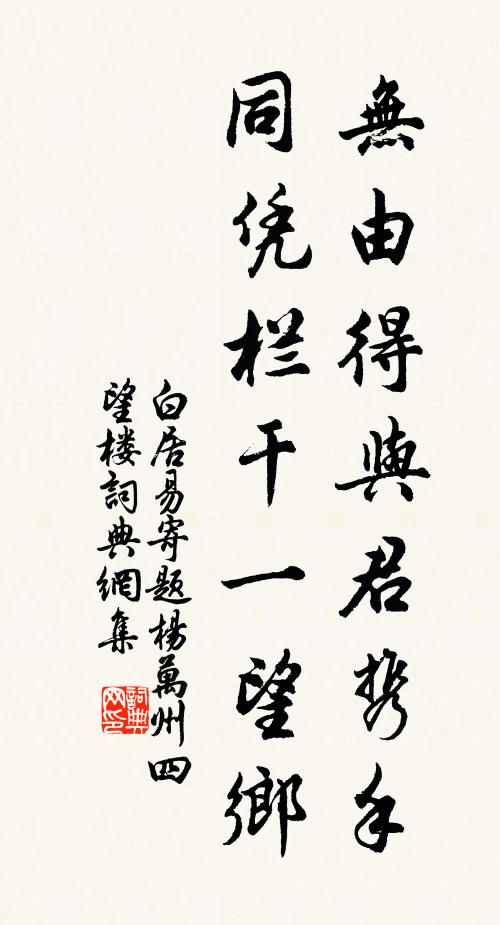 無由得與君携手
同凭栏干一望鄉
白居易寄题楊萬州四
望楼詞典網集
詞典
网印